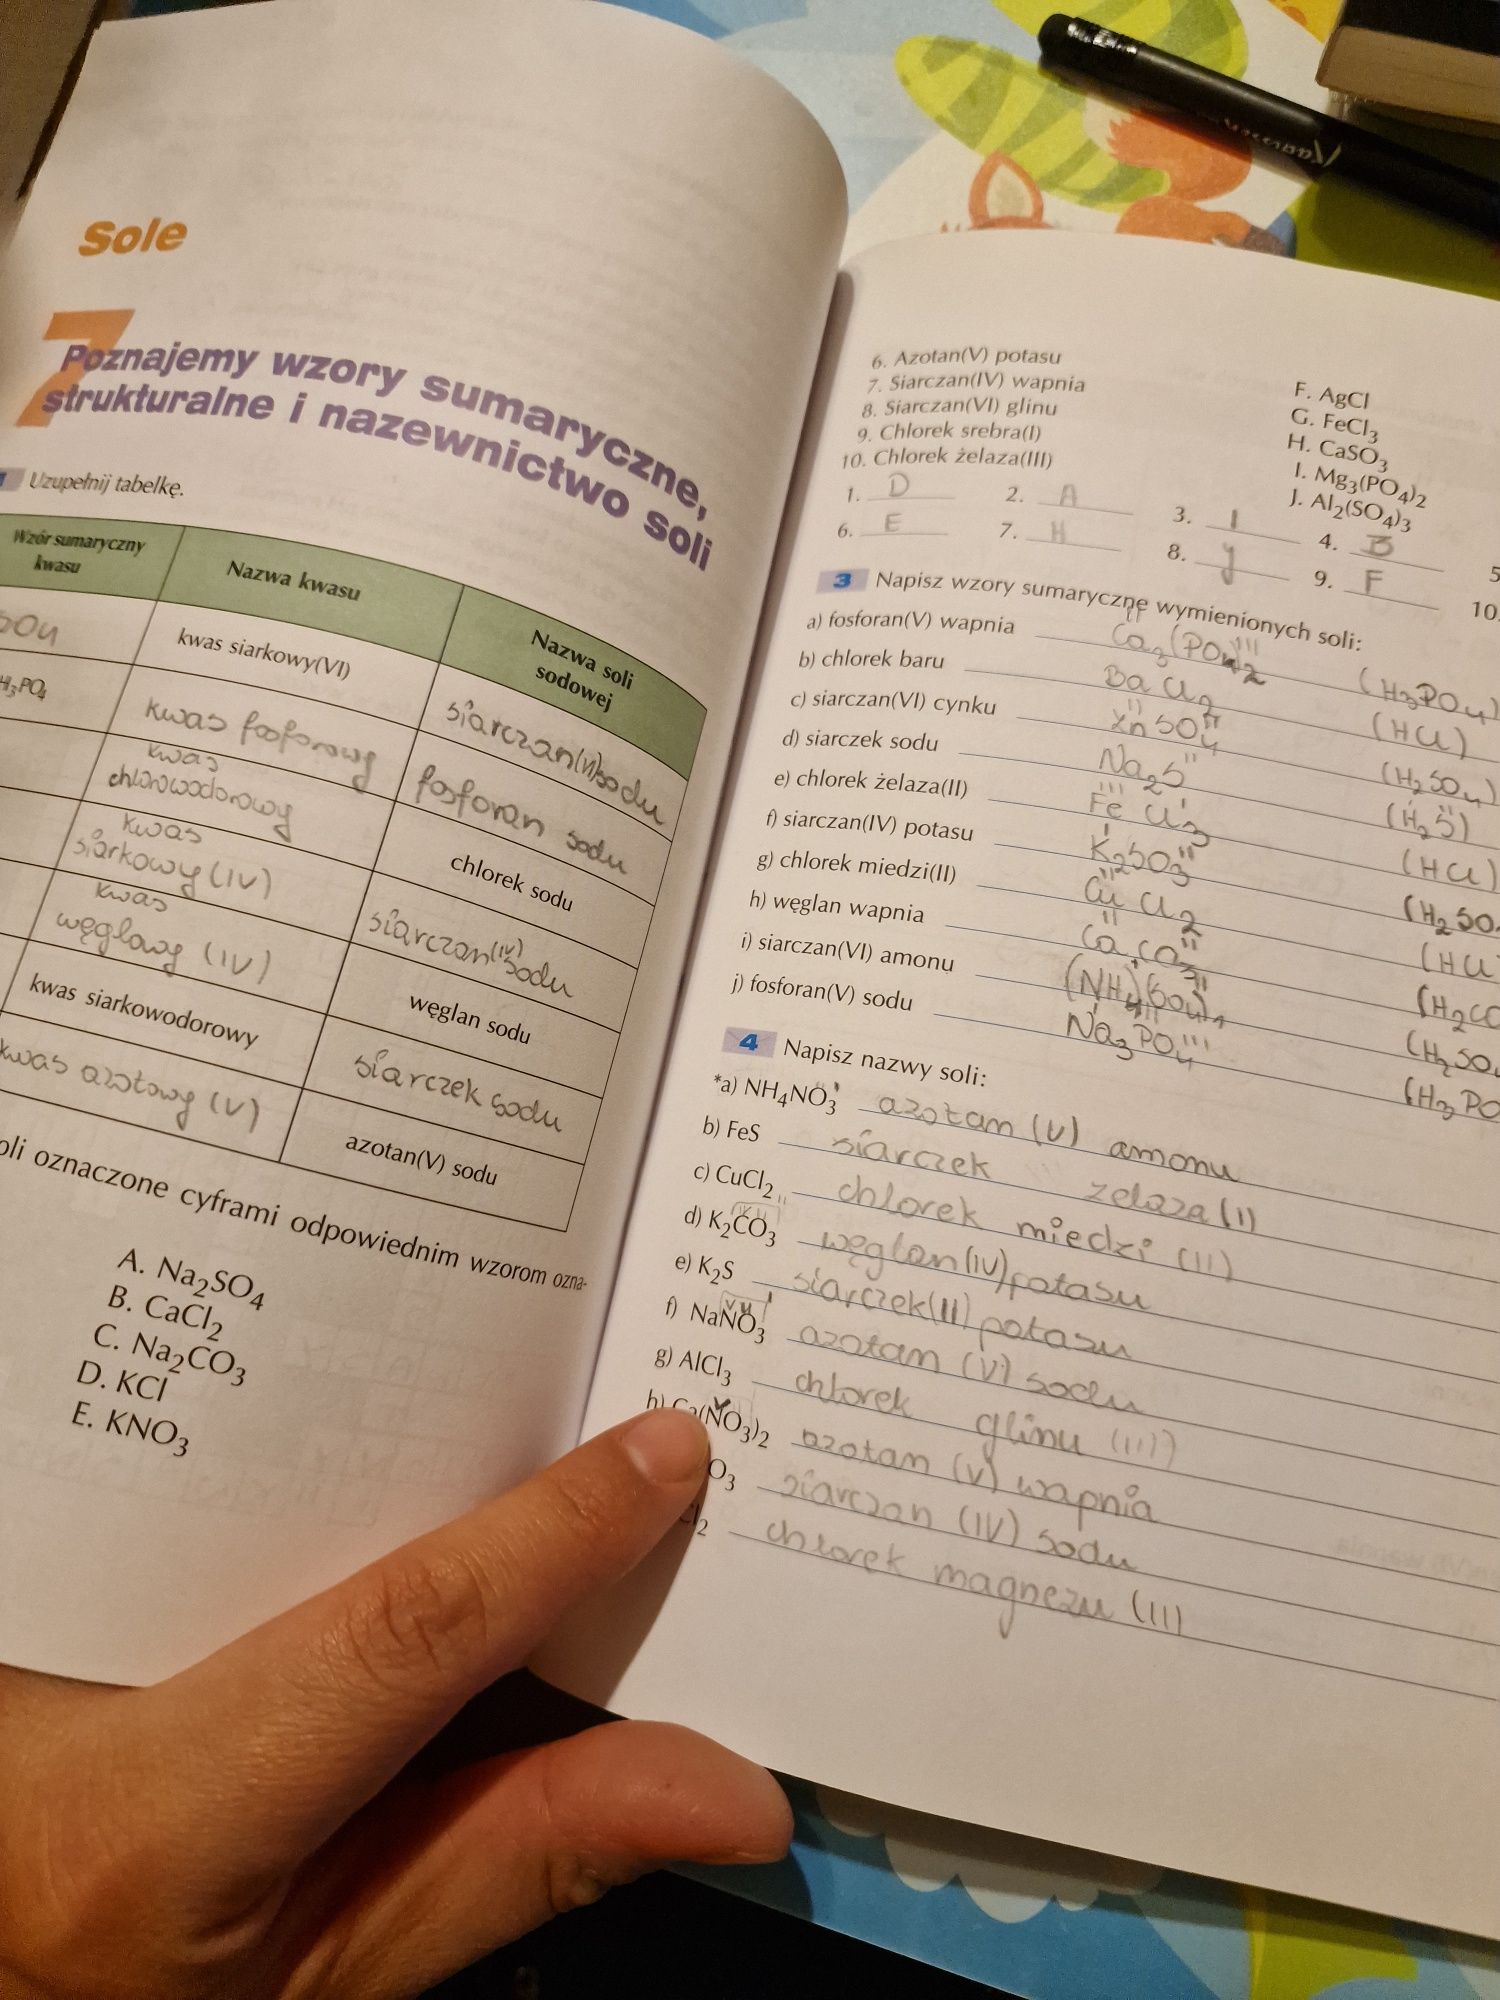 Sole
7
Poznajemy wzory sumaryczne,
strukturalne i nazewnictwo soli
1 Uzupełnij tabelkę.
Wzór sumaryczny kwasu
Nazwa kwasu
Nazwa soli sodowej
SO4
kwas siarkowy(VI)
siarczan(VI) sodu
H3PO4
kwas fosforowy
fosforan sodu
kwas chlorowodorowy
chlorek sodu
kwas siarkowy (IV)
siarczan(IV) sodu
kwas węglowy (IV)
węglan sodu
kwas siarkowodorowy
siarczek sodu
kwas azotowy (V)
azotan(V) sodu
oli oznaczone cyframi odpowiednim wzorom ozna-
A. Na2SO4
B. CaCl2
C. Na2CO3
D. KCl
E. KNO3
6. Azotan(V) potasu
7. Siarczan(IV) wapnia
8. Siarczan(VI) glinu
9. Chlorek srebra(I)
10. Chlorek żelaza(III)
F. AgCl
G. FeCl3
H. CaSO3
I. Mg3(PO4)2
J. Al2(SO4)3
1. D 2. A 3. I 4. B 5
6. E 7. H 8. J 9. F 10.
3 Napisz wzory sumaryczne wymienionych soli:
a) fosforan(V) wapnia Ca3(PO4)2 (H3PO4)
b) chlorek baru BaCl2 (HCl)
c) siarczan(VI) cynku ZnSO4 (H2SO4)
d) siarczek sodu Na2S (H2S)
e) chlorek żelaza(II) FeCl3 (HCl)
f) siarczan(IV) potasu K2SO3 (H2SO
g) chlorek miedzi(II) CuCl2 (HCl
h) węglan wapnia CaCO3 (H2CO
i) siarczan(VI) amonu (NH4)(SO4)1 (H2SO4
j) fosforan(V) sodu Na3PO4 (H3PO
4 Napisz nazwy soli:
*a) NH4NO3 azotam (V) amonu
b) FeS siarczek zelaza (I)
c) CuCl2 chlorek miedzi (II)
d) K2CO3 węglan(IV) potasu
e) K2S siarczek(II) potasu
f) NaNO3 azotam (V) sodu
g) AlCl3 chlorek glinu (III)
h) Ca(NO3)2 azotam (V) wapnia
O3 siarczan (IV) sodu
Cl2 chlorek magnezu (II)